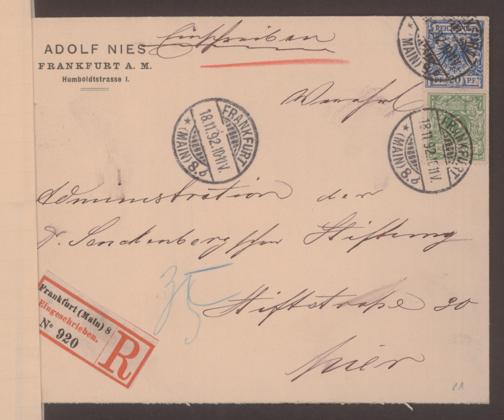 ADOLF NIES
FRANKFURT A. M.
Humboldtstrasse 1.
Einschreiben
REICHSPOST
20 PF 20 PF
FRANKFURT
18.11.92.10-11V.
(MAIN) 8. b
FRANKFURT
18.11.92.10-11V.
(MAIN) 8. b
Administration der
Dr. Senckenbergschen Stiftung
35
Stiftstraße 30
hier
Frankfurt (Main) 8
Eingeschrieben.
No 920
R